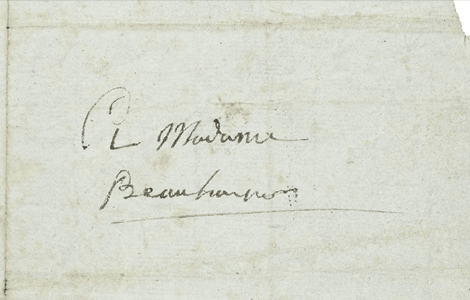 A Madame
Beauharnois